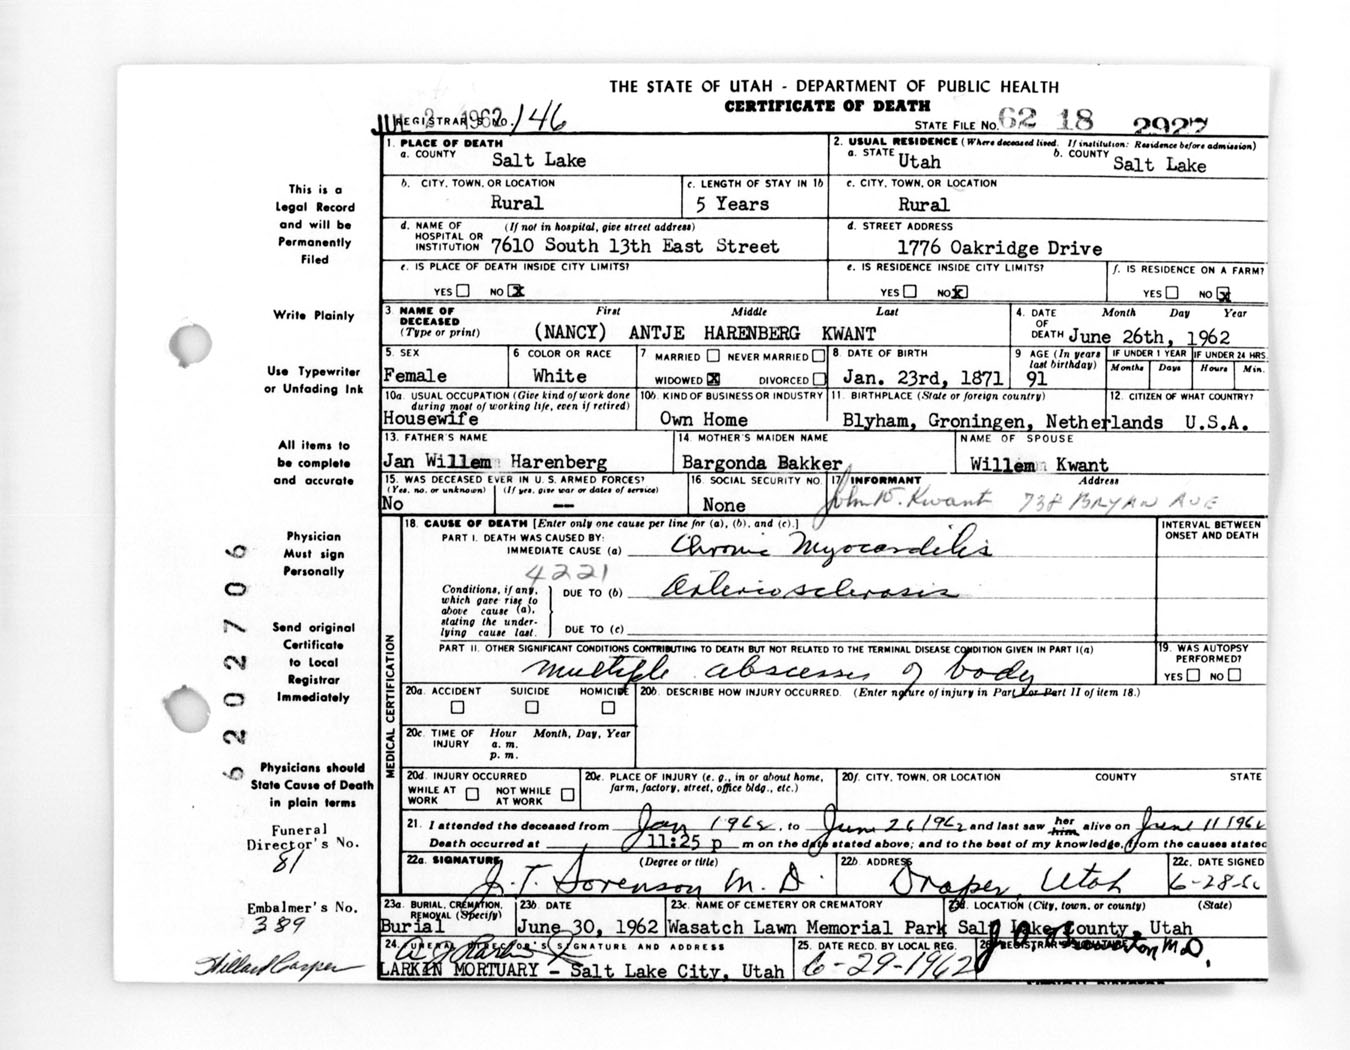 THE STATE OF UTAH - DEPARTMENT OF PUBLIC HEALTH
CERTIFICATE OF DEATH
JUL 2 1962
REGISTRAR'S NO. 146
STATE FILE NO. 62 18 2927
1. PLACE OF DEATH
a. COUNTY Salt Lake
2. USUAL RESIDENCE (Where deceased lived. If institution: Residence before admission)
a. STATE Utah b. COUNTY Salt Lake
b. CITY, TOWN, OR LOCATION
Rural
c. LENGTH OF STAY IN 1b
5 Years
c. CITY, TOWN, OR LOCATION
Rural
d. NAME OF HOSPITAL OR INSTITUTION (If not in hospital, give street address)
7610 South 13th East Street
d. STREET ADDRESS
1776 Oakridge Drive
e. IS PLACE OF DEATH INSIDE CITY LIMITS?
YES NO X
e. IS RESIDENCE INSIDE CITY LIMITS?
YES NO X
f. IS RESIDENCE ON A FARM?
YES NO X
3. NAME OF DECEASED (Type or print) First Middle Last
(NANCY) ANTJE HARENBERG KWANT
4. DATE OF DEATH Month Day Year
June 26th, 1962
5. SEX
Female
6 COLOR OR RACE
White
7 MARRIED NEVER MARRIED
WIDOWED X DIVORCED
8. DATE OF BIRTH
Jan. 23rd, 1871
9 AGE (In years last birthday)
91
IF UNDER 1 YEAR
Months Days
IF UNDER 24 HRS.
Hours Min.
10a. USUAL OCCUPATION (Give kind of work done during most of working life, even if retired)
Housewife
10b. KIND OF BUSINESS OR INDUSTRY
Own Home
11. BIRTHPLACE (State or foreign country)
Blyham, Groningen, Netherlands
12. CITIZEN OF WHAT COUNTRY?
U.S.A.
13. FATHER'S NAME
Jan Willem Harenberg
14. MOTHER'S MAIDEN NAME
Bargonda Bakker
NAME OF SPOUSE
Willem Kwant
15. WAS DECEASED EVER IN U. S. ARMED FORCES?
(Yes, no, or unknown) (If yes, give war or dates of service)
No --
16. SOCIAL SECURITY NO.
None
17 INFORMANT Address
John W. Kwant 738 BRYAN AVE
18. CAUSE OF DEATH [Enter only one cause per line for (a), (b), and (c).]
INTERVAL BETWEEN ONSET AND DEATH
PART I. DEATH WAS CAUSED BY:
IMMEDIATE CAUSE (a) Chronic Myocarditis
4221
Conditions, if any, which gave rise to above cause (a), stating the underlying cause last.
DUE TO (b) Arteriosclerosis
DUE TO (c)
PART II. OTHER SIGNIFICANT CONDITIONS CONTRIBUTING TO DEATH BUT NOT RELATED TO THE TERMINAL DISEASE CONDITION GIVEN IN PART I(a)
multiple abscesses of body
19. WAS AUTOPSY PERFORMED?
YES NO
MEDICAL CERTIFICATION
20a. ACCIDENT SUICIDE HOMICIDE
20b. DESCRIBE HOW INJURY OCCURRED. (Enter nature of injury in Part I or Part II of item 18.)
20c. TIME OF INJURY Hour Month, Day, Year
a. m.
p. m.
20d. INJURY OCCURRED
WHILE AT WORK NOT WHILE AT WORK
20e. PLACE OF INJURY (e. g., in or about home, farm, factory, street, office bldg., etc.)
20f. CITY, TOWN, OR LOCATION COUNTY STATE
21. I attended the deceased from Jan 1962, to June 26 1962 and last saw her him alive on June 11 1962
Death occurred at 11:25 p m on the date stated above; and to the best of my knowledge, from the causes stated
22a. SIGNATURE (Degree or title)
J. T. Sorenson M. D.
22b. ADDRESS
Draper, Utah
22c. DATE SIGNED
6-28-62
23a. BURIAL, CREMATION, REMOVAL (Specify)
Burial
23b. DATE
June 30, 1962
23c. NAME OF CEMETERY OR CREMATORY
Wasatch Lawn Memorial Park
23d. LOCATION (City, town, or county) (State)
Salt Lake County, Utah
24. FUNERAL DIRECTOR'S SIGNATURE AND ADDRESS
LARKIN MORTUARY - Salt Lake City, Utah
25. DATE RECD. BY LOCAL REG.
6-29-1962
26. REGISTRAR'S SIGNATURE
M.D.
MEDICAL DIRECTOR
This is a
Legal Record
and will be
Permanently
Filed
Write Plainly
Use Typewriter
or Unfading Ink
All items to
be complete
and accurate
Physician
Must sign
Personally
Send original
Certificate
to Local
Registrar
Immediately
Physicians should
State Cause of Death
in plain terms
Funeral
Director's No.
81
Embalmer's No.
389
6202706